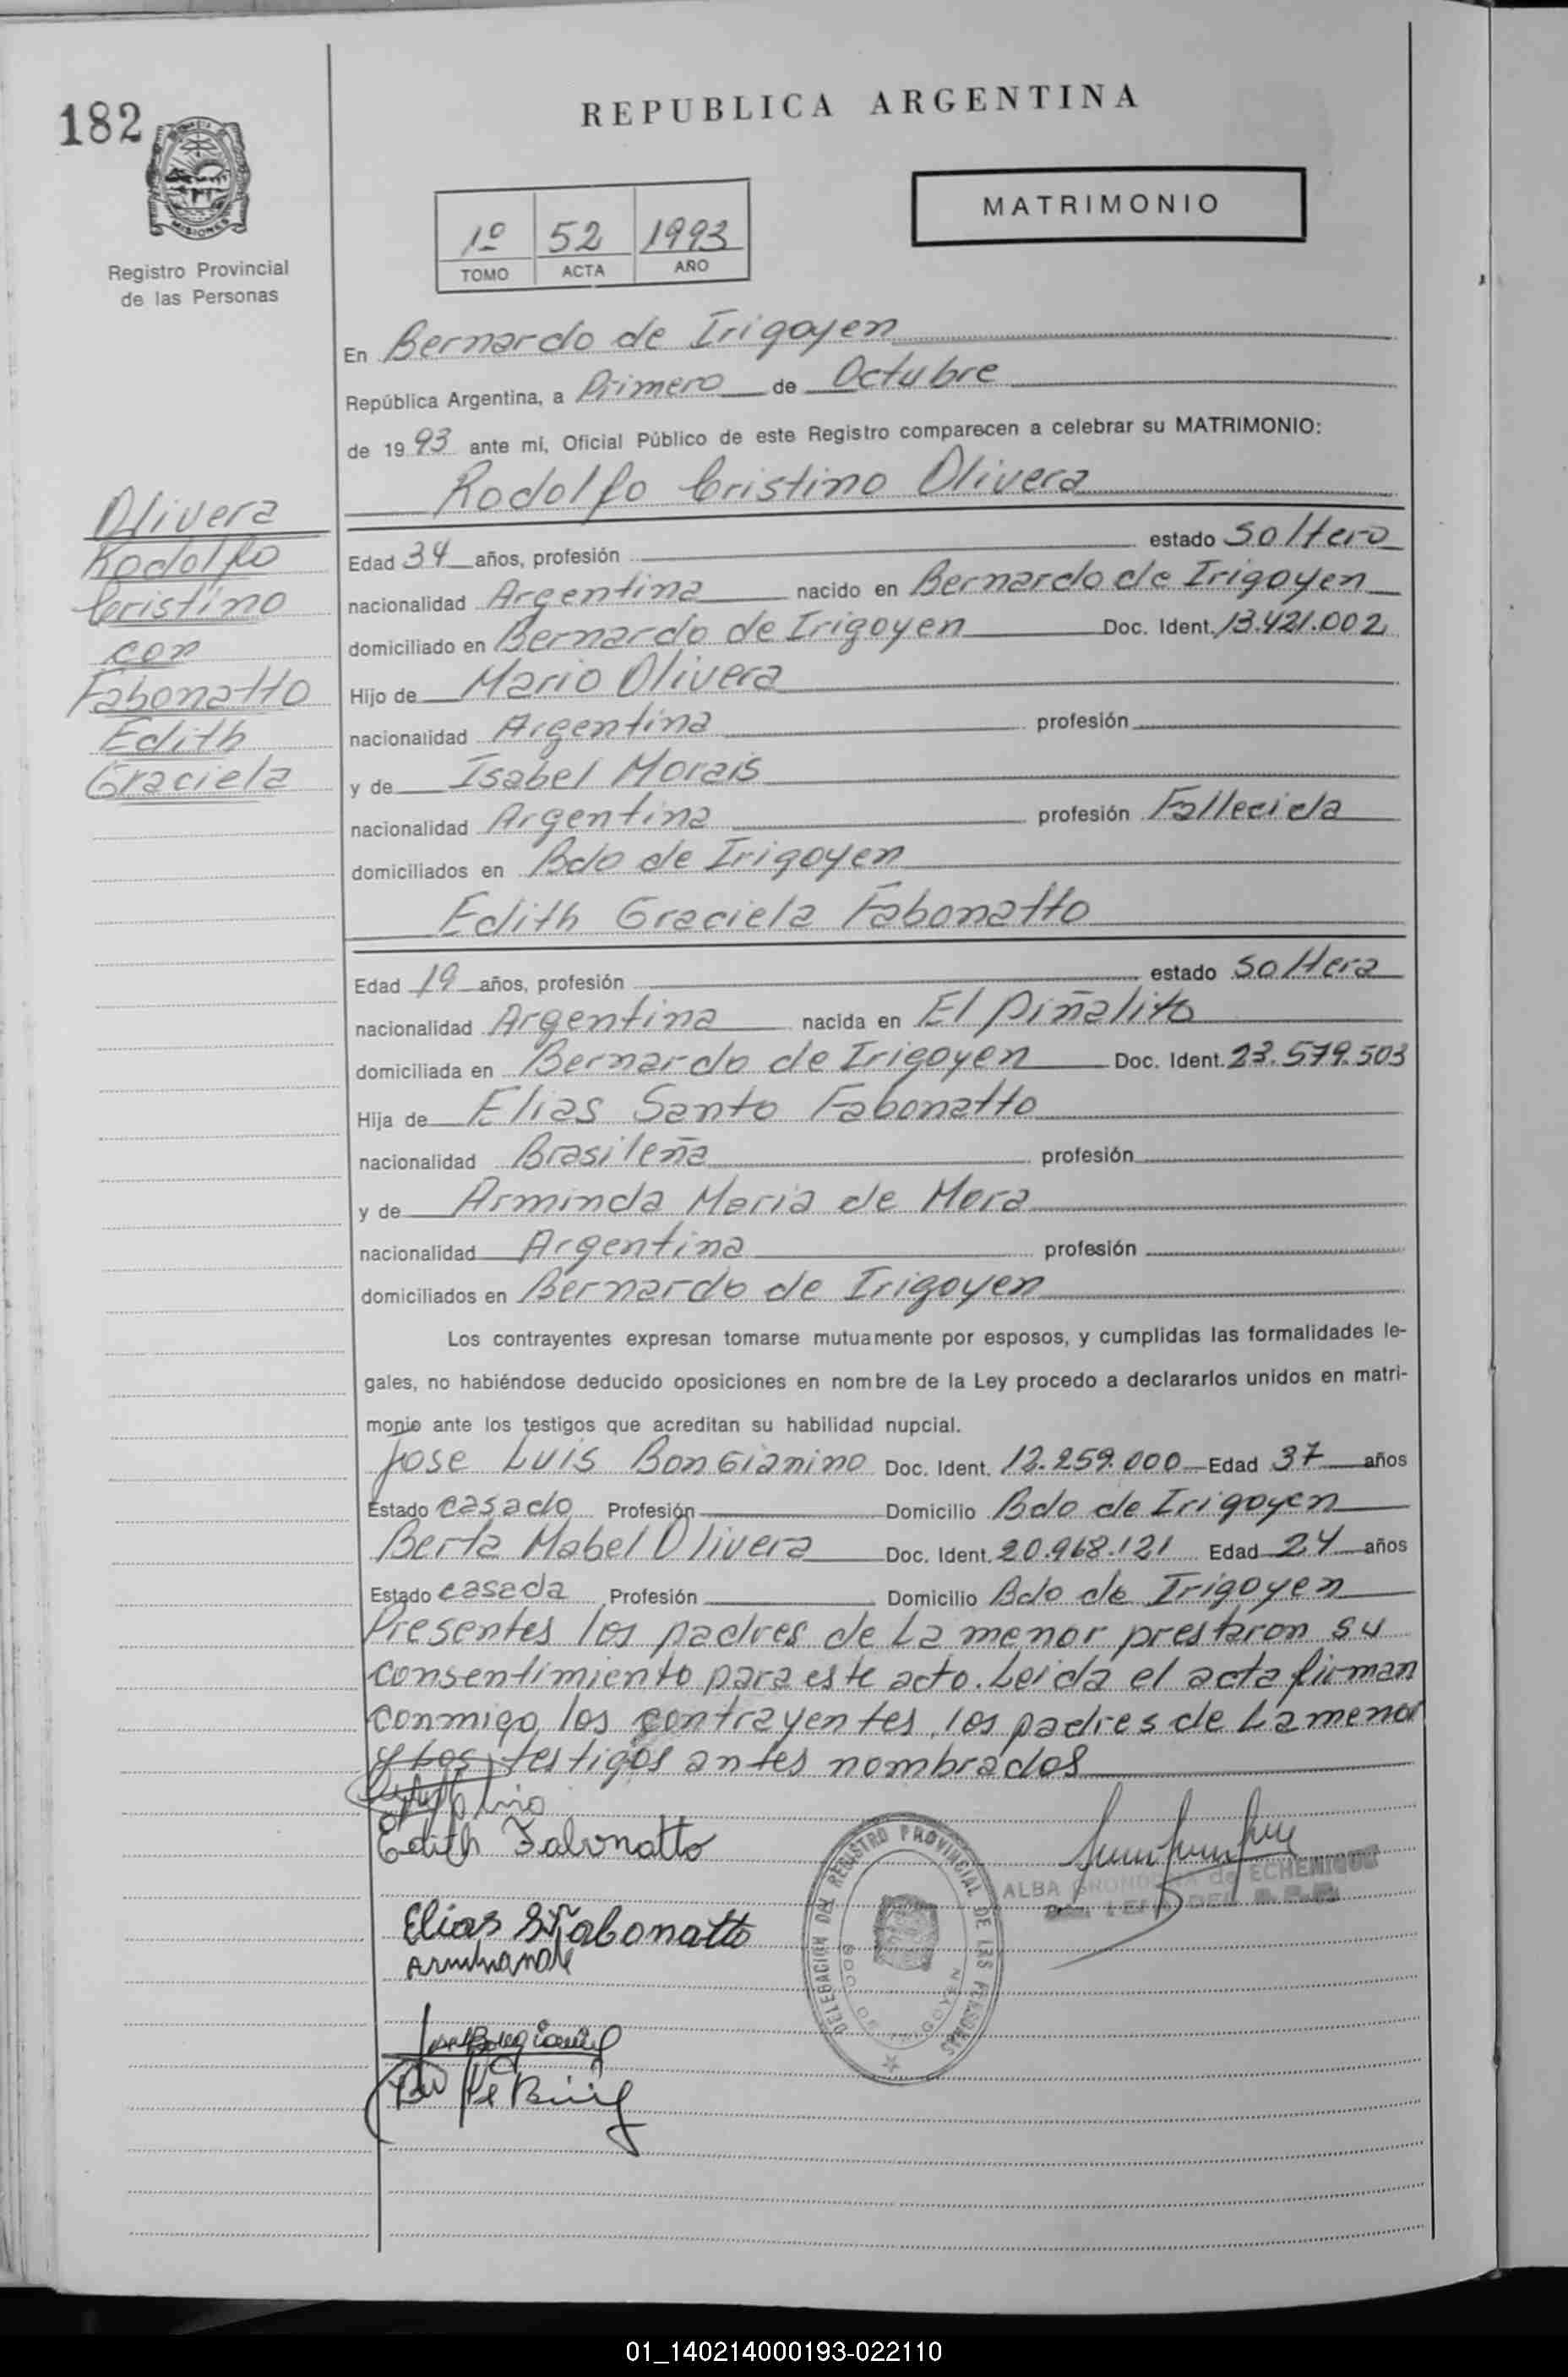 182
REPUBLICA ARGENTINA
MISIONES
Registro Provincial
de las Personas
1º 52 1993
TOMO ACTA AÑO
MATRIMONIO
En Bernardo de Irigoyen
República Argentina, a Primero de Octubre
de 1993 ante mí, Oficial Público de este Registro comparecen a celebrar su MATRIMONIO:
Rodolfo Cristino Olivera
Olivera
Rodolfo
Cristino
con
Fabonatto
Edith
Graciela
Edad 34 años, profesión estado soltero
nacionalidad Argentina nacido en Bernardo de Irigoyen
domiciliado en Bernardo de Irigoyen Doc. Ident. 13.421.002
Hijo de Mario Olivera
nacionalidad Argentina profesión
y de Isabel Morais
nacionalidad Argentina profesión Fallecida
domiciliados en Bdo de Irigoyen
Edith Graciela Fabonatto
Edad 19 años, profesión estado soltera
nacionalidad Argentina nacida en El Piñalito
domiciliada en Bernardo de Irigoyen Doc. Ident. 23.579.503
Hija de Elias Santo Fabonatto
nacionalidad Brasileña profesión
y de Arminda Maria de Mora
nacionalidad Argentina profesión
domiciliados en Bernardo de Irigoyen
Los contrayentes expresan tomarse mutuamente por esposos, y cumplidas las formalidades le-
gales, no habiéndose deducido oposiciones en nombre de la Ley procedo a declararlos unidos en matri-
monio ante los testigos que acreditan su habilidad nupcial.
Jose Luis Bongianino Doc. Ident. 12.259.000 Edad 37 años
Estado casado Profesión Domicilio Bdo de Irigoyen
Berta Mabel Olivera Doc. Ident. 20.968.121 Edad 24 años
Estado casada Profesión Domicilio Bdo de Irigoyen
Presentes los padres de La menor prestaron su
consentimiento para este acto. Leida el acta firman
conmigo los contrayentes, los padres de La menor
y Los testigos antes nombrados
Edith Fabonatto
Elias S. Fabonatto
DELEGACION DEL REGISTRO PROVINCIAL DE LAS PERSONAS
BDO. DE IRIGOYEN
ALBA GRONDONA de ECHENIQUE
01_140214000193-022110